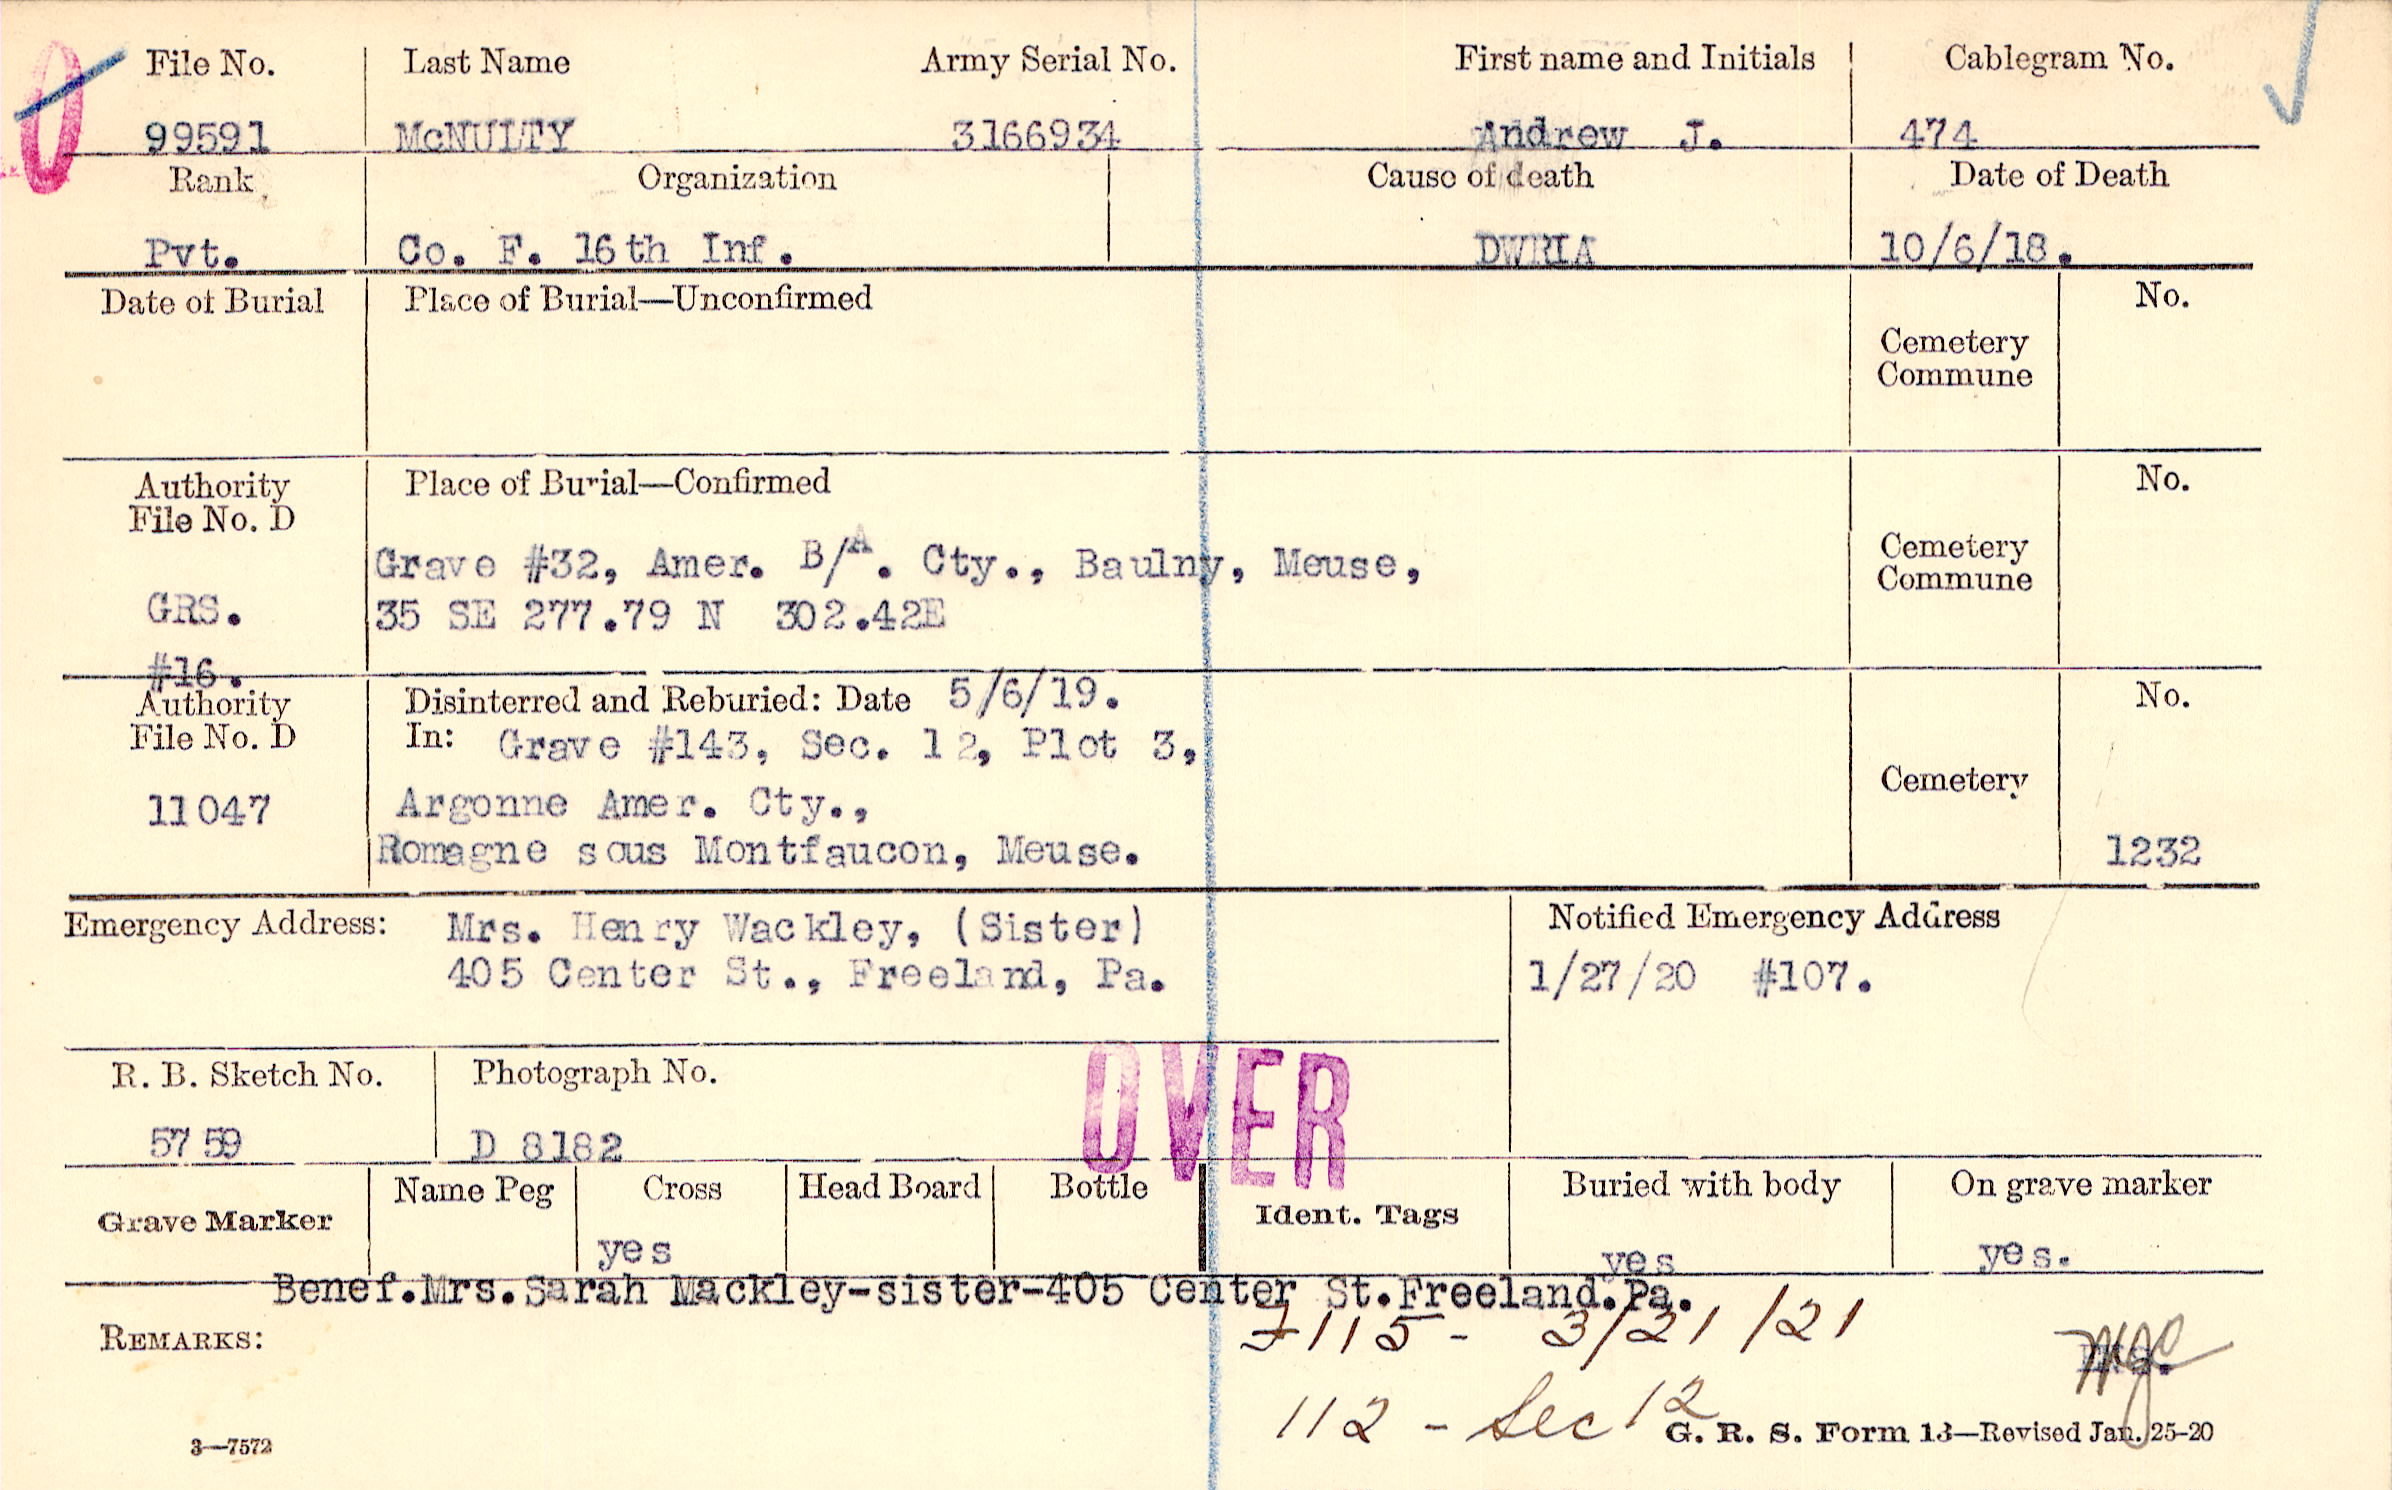 File No. Last Name Army Serial No. First name and Initials Cablegram No.
99591 McNULTY 3166934 Andrew J. 474
Rank Organization Cause of death Date of Death
Pvt. Co. F. 16th Inf. DWRIA 10/6/18.
Date of Burial Place of Burial—Unconfirmed No.
Cemetery
Commune
Authority Place of Burial—Confirmed No.
File No. D
Grave #32, Amer. B/A. Cty., Baulny, Meuse, Cemetery
Commune
GRS. 35 SE 277.79 N 302.42E
#16.
Authority Disinterred and Reburied: Date 5/6/19. No.
File No. D In: Grave #143, Sec. 12, Plot 3,
Cemetery
11047 Argonne Amer. Cty.,
Romagne sous Montfaucon, Meuse. 1232
Emergency Address: Mrs. Henry Wackley, (Sister) Notified Emergency Address
405 Center St., Freeland, Pa. 1/27/20 #107.
R. B. Sketch No. Photograph No. OVER
5759 D 8182
Grave Marker Name Peg Cross Head Board Bottle Ident. Tags Buried with body On grave marker
yes yes yes.
Benef.Mrs.Sarah Mackley-sister-405 Center St.Freeland.Pa.
REMARKS: 115 - 3/21/21
112 - Sec 12
3—7572 G. R. S. Form 13—Revised Jan. 25-20